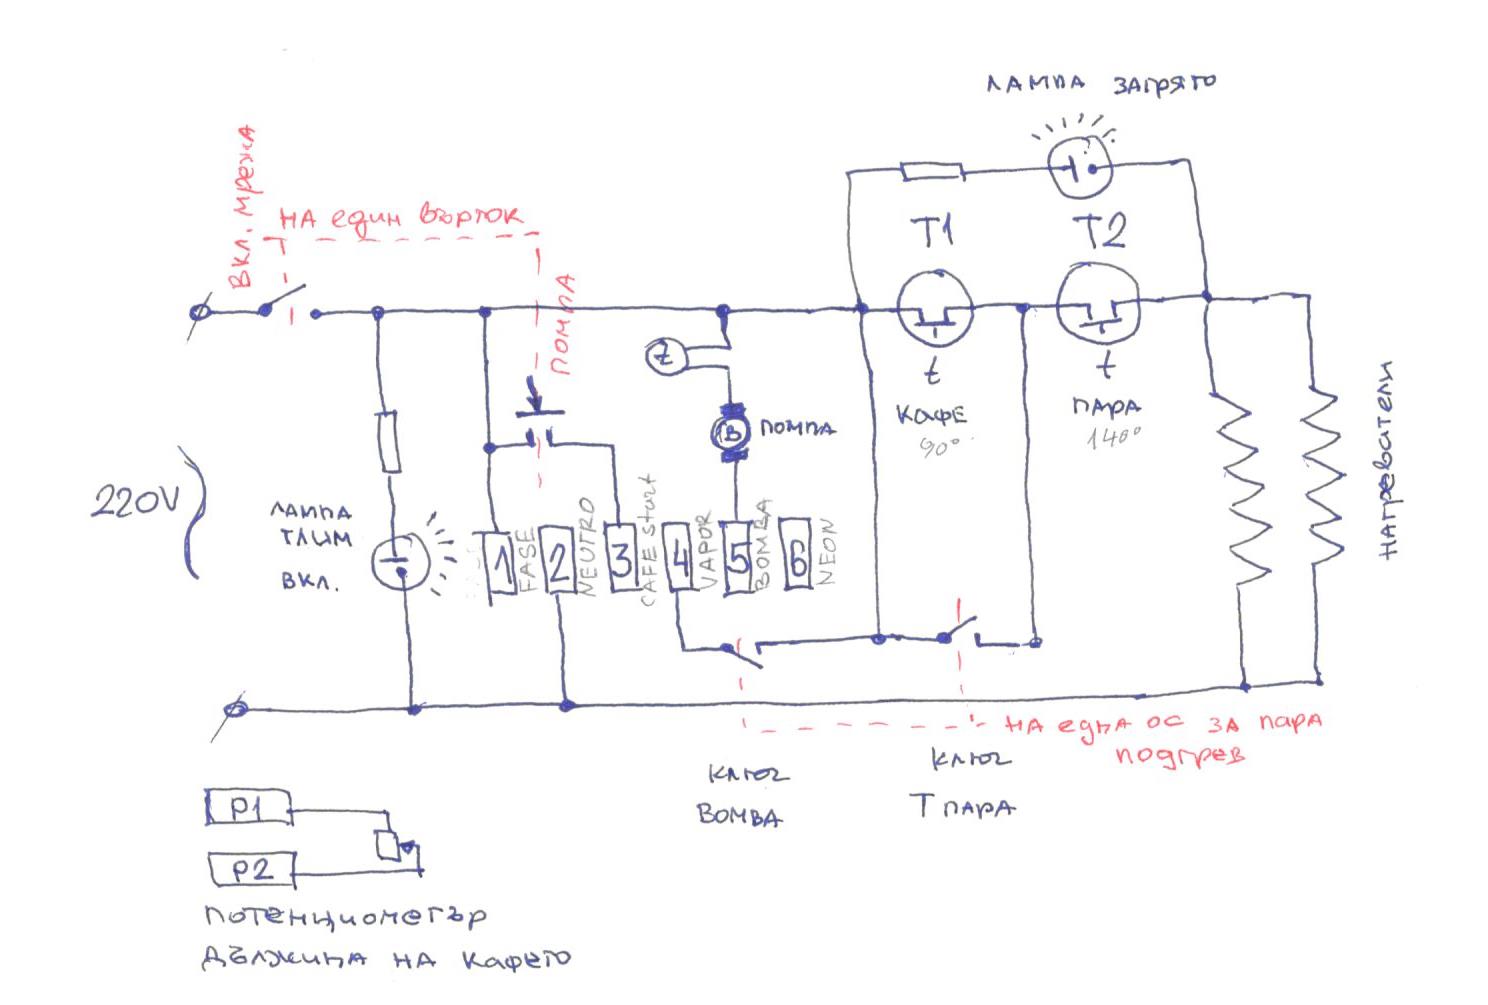 ЛАМПА ЗАГРЯТО
ВКЛ. Мрежа
НА един Върток
ПОМПА
T1
T2
t
t
t
КАФЕ
90°
ПАРА
140°
ПОМПА
220V
ЛАМПА
ТЛИМ
ВКЛ.
1
FASE
2
NEUTRO
3
CAFE start
4
VAPOR
5
BOMBA
6
NEON
НАГРЕВАТЕЛИ
НА една ос ЗА пара
подгрев
КЛЮЧ
BOMBA
КЛЮЧ
T ПАРА
P1
P2
потенциометър
Дължина на кафето